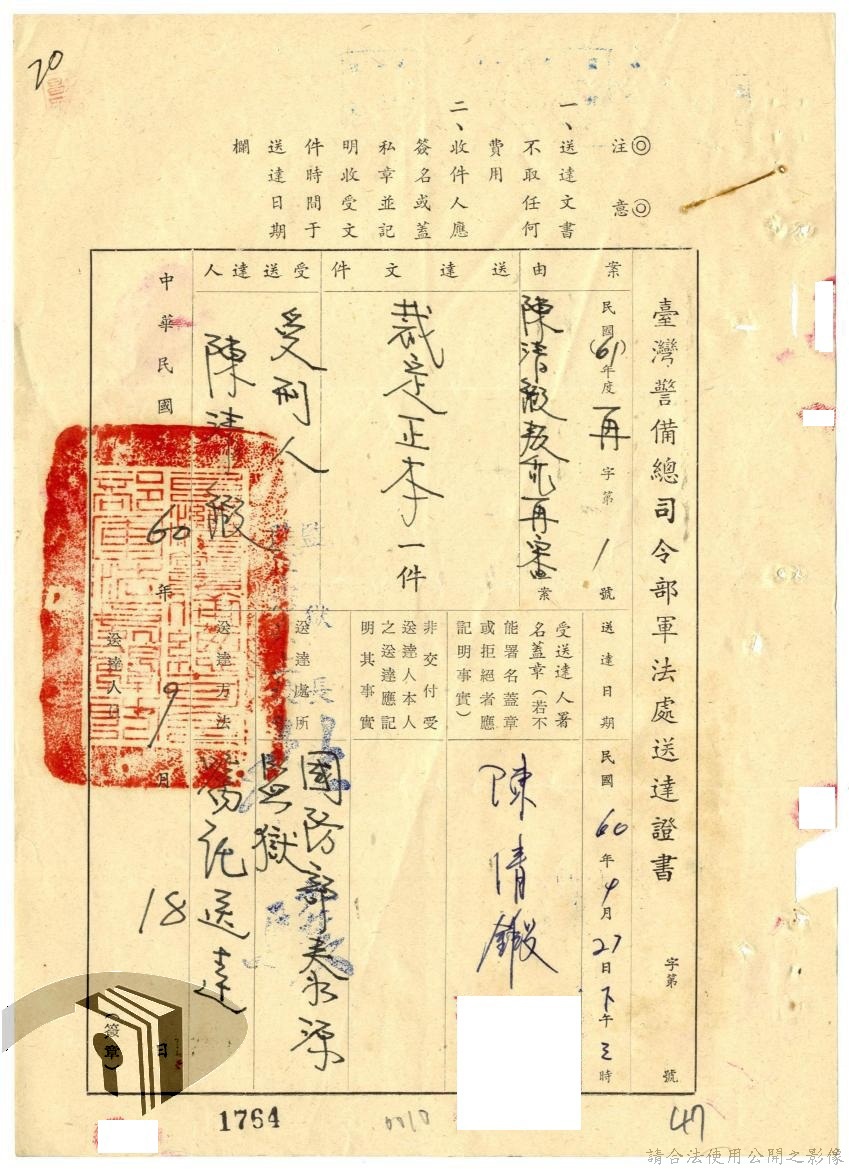 20
◎注意◎
一、送達文書
不取任何
費用
二、收件人應
簽名或蓋
私章並記
明收受文
件時間于
送達日期
欄
臺灣警備總司令部軍法處送達證書
字第 號
案由
民國(61)年度再字第1號
陳清鍛叛亂再審案
送達文件
裁定正本一件
受送達人
受刑人
陳清鍛
送達日期
民國60年9月27日下午三時
受送達人署
名蓋章(若不
能署名蓋章
或拒絕者應
記明事實)
陳清鍛
非交付受
送達人本人
之送達應記
明其事實
送達處所
國防部泰源
監獄
送達方法
囑託送達
中華民國60年9月18日
送達人
(簽章)
監獄長
1764
0010
47
請合法使用公開之影像